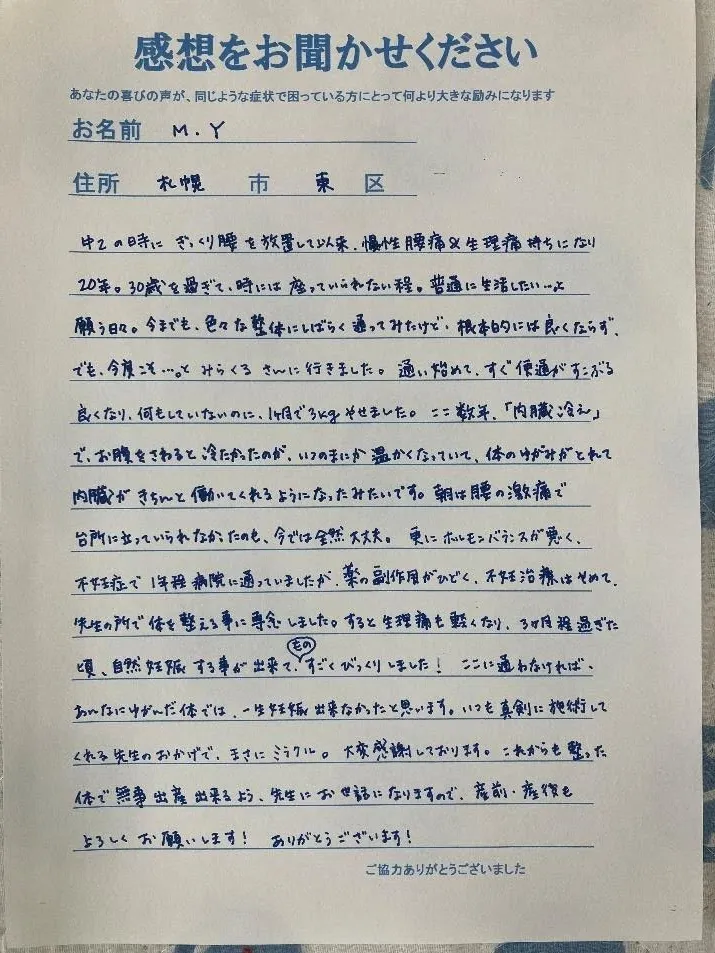 感想をお聞かせください
あなたの喜びの声が、同じような症状で困っている方にとって何より大きな励みになります
お名前 M.Y
住所 札幌 市 東 区
中2の時に ぎっくり腰を放置して以来、慢性腰痛&生理痛持ちになり
20年。30歳を過ぎて、時には座っていられない程。普通に生活したい…と
願う日々。今までも、色々な整体にしばらく通ってみたけど、根本的には良くならず、
でも、今度こそ…。と みらくる さんに行きました。 通い始めて、すぐ便通がすこぶる
良くなり、何もしていないのに、1ヶ月で3kgやせました。ここ数年、「内臓冷え」
で、お腹をさわると冷たかったのが、いつのまにか温かくなっていて、体のゆがみがとれて
内臓がきちんと働いてくれるようになったみたいです。朝は腰の激痛で
台所に立っていられなかったのも、今では全然大丈夫。 更にホルモンバランスが悪く、
不妊症で1年程病院に通っていましたが、薬の副作用がひどく、不妊治療はやめて、
先生の所で体を整える事に専念しました。すると生理痛も軽くなり、3ヶ月程過ぎた
頃、自然妊娠する事が出来て、ものすごくびっくりしました! ここに通わなければ、
あんなにゆがんだ体では、一生妊娠出来なかったと思います。いつも真剣に施術して
くれる先生のおかげで、まさにミラクル。 大変感謝しております。これからも整った
体で無事出産出来るよう、先生にお世話になりますので、産前・産後も
よろしくお願いします! ありがとうございます!
ご協力ありがとうございました